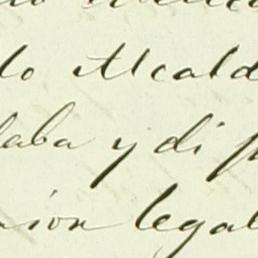 lo Alcald
laba y di p
nion legal